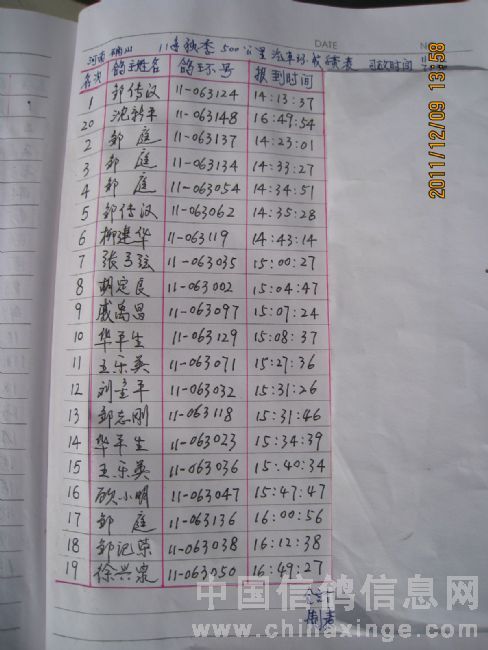 河南确山 11年秋季500公里汽车环成绩表 司放时间
DATE
NO
2011/12/09 13:58
名次 鸽主姓名 鸽环号 报到时间
1 邹传汉 11-063124 14:13:37
20 沈新平 11-063148 16:49:54
2 邹庭 11-063137 14:23:01
3 邹庭 11-063134 14:33:27
4 邹庭 11-063054 14:34:51
5 邹传汉 11-063062 14:35:28
6 柳建华 11-063119 14:43:14
7 张弓弦 11-063035 15:00:27
8 胡定良 11-063002 15:04:47
9 戚禹昌 11-063097 15:07:24
10 华平生 11-063129 15:08:37
11 王乐英 11-063071 15:27:36
12 刘金平 11-063032 15:31:26
13 邹志刚 11-063118 15:31:46
14 华平生 11-063023 15:34:39
15 王乐英 11-063036 15:40:34
16 欧小明 11-063047 15:47:47
17 邹庭 11-063136 16:00:56
18 邹记荣 11-063038 16:12:38
19 徐兴泉 11-063050 16:49:27
中国信鸽信息网
www.chinaxinge.com